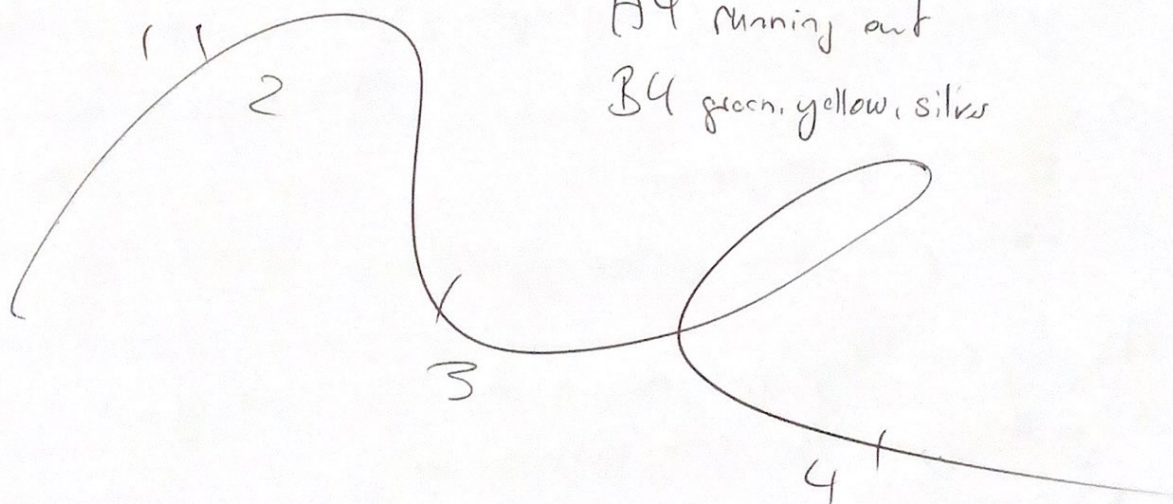 A4 running out
B4 green, yellow, silver
1
2
3
4